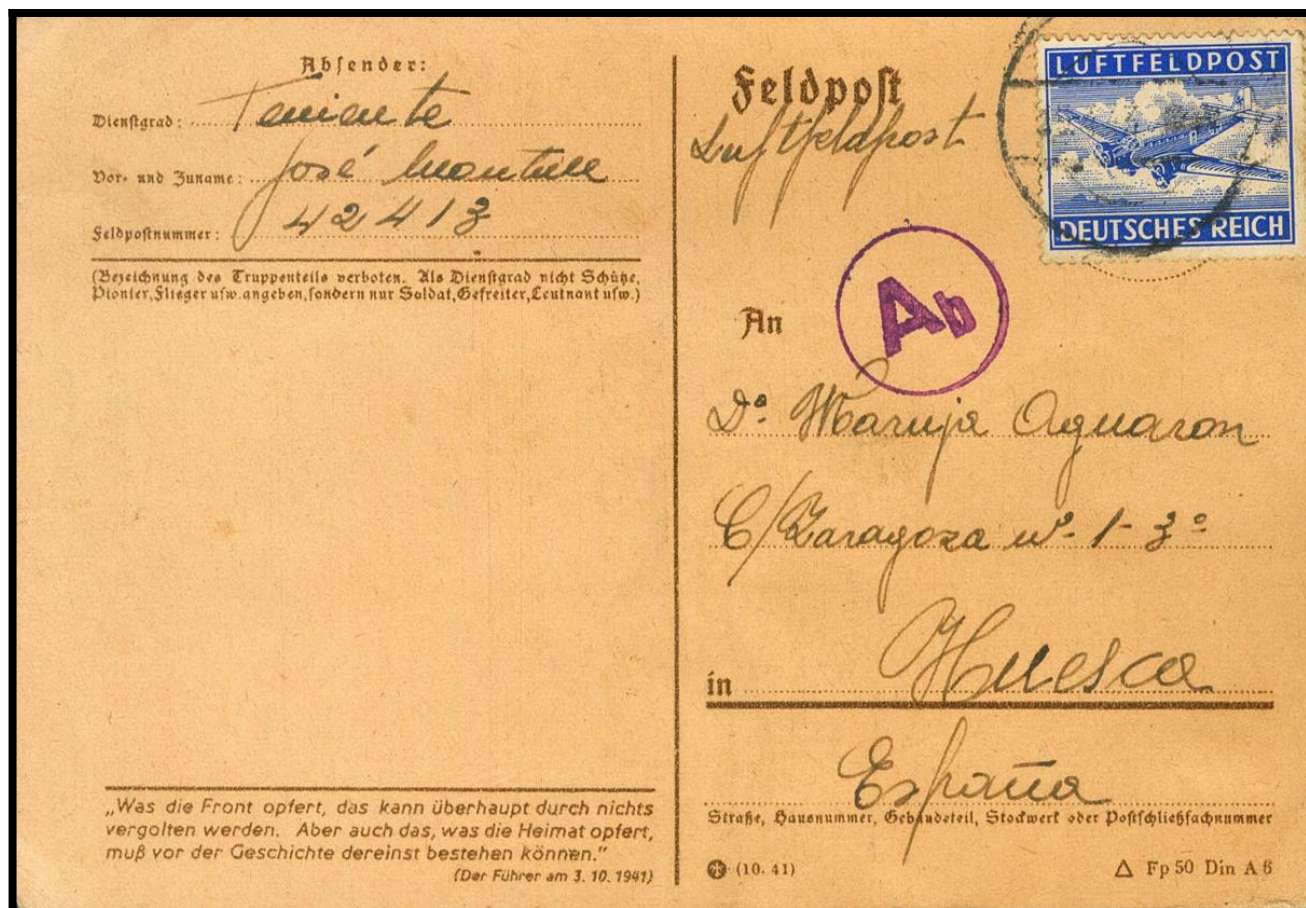 Absender:
Dienstgrad: Teniente
Vor- und Zuname: José
Feldpostnummer: 42413
(Bezeichnung des Truppenteils verboten. Als Dienstgrad nicht Schütze,
Pionier, Flieger usw. angeben, sondern nur Soldat, Gefreiter, Leutnant usw.)
„Was die Front opfert, das kann überhaupt durch nichts
vergolten werden. Aber auch das, was die Heimat opfert,
muß vor der Geschichte dereinst bestehen können.“
(Der Führer am 3. 10. 1941)
Feldpost
Luftfeldpost
LUFTFELDPOST
DEUTSCHES REICH
Ab
An
Dª Maruja Aguaron
C/ Zaragoza nº 1-3º
in Huesca
España
Straße, Hausnummer, Gebäudeteil, Stockwerk oder Postschließfachnummer
(10. 41)
△ Fp 50 Din A 6